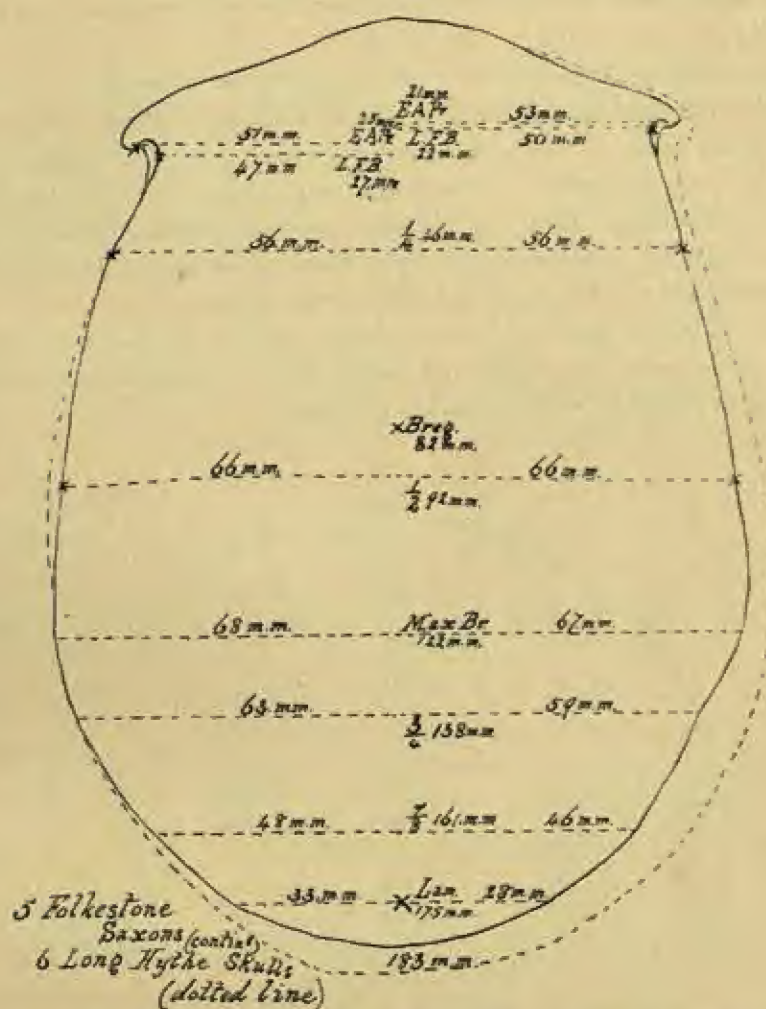 21mm
EAPr 53mm.
25mm
51mm EAPr L.F.B. 50mm
22m.m.
47mm L.F.B.
27mm
56m.m. 1/4 46mm 56m.m.
xBreg.
82mm.
66m.m. 66mm.
1/2 92mm.
68m.m. Max Br 67mm
122m.m.
63mm. 59mm.
3/4 138mm
48mm. 7/8 161mm 46mm.
33mm Lam 28mm.
175mm.
5 Folkestone
Saxons
6 Long Hythe Skulls
183m.m.
(dotted line)